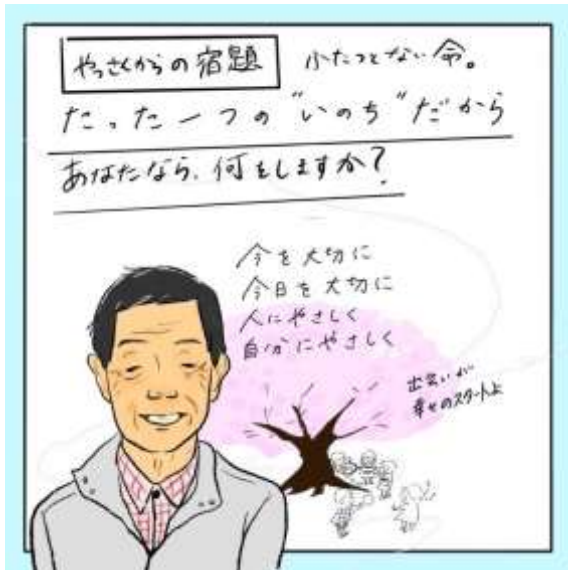 やっさくからの宿題 ふたつとない命。
たった一つの"いのち"だから
あなたなら、何をしますか?
今を大切に
今日を大切に
人にやさしく
自分にやさしく
出会いが
幸せのスタートよ